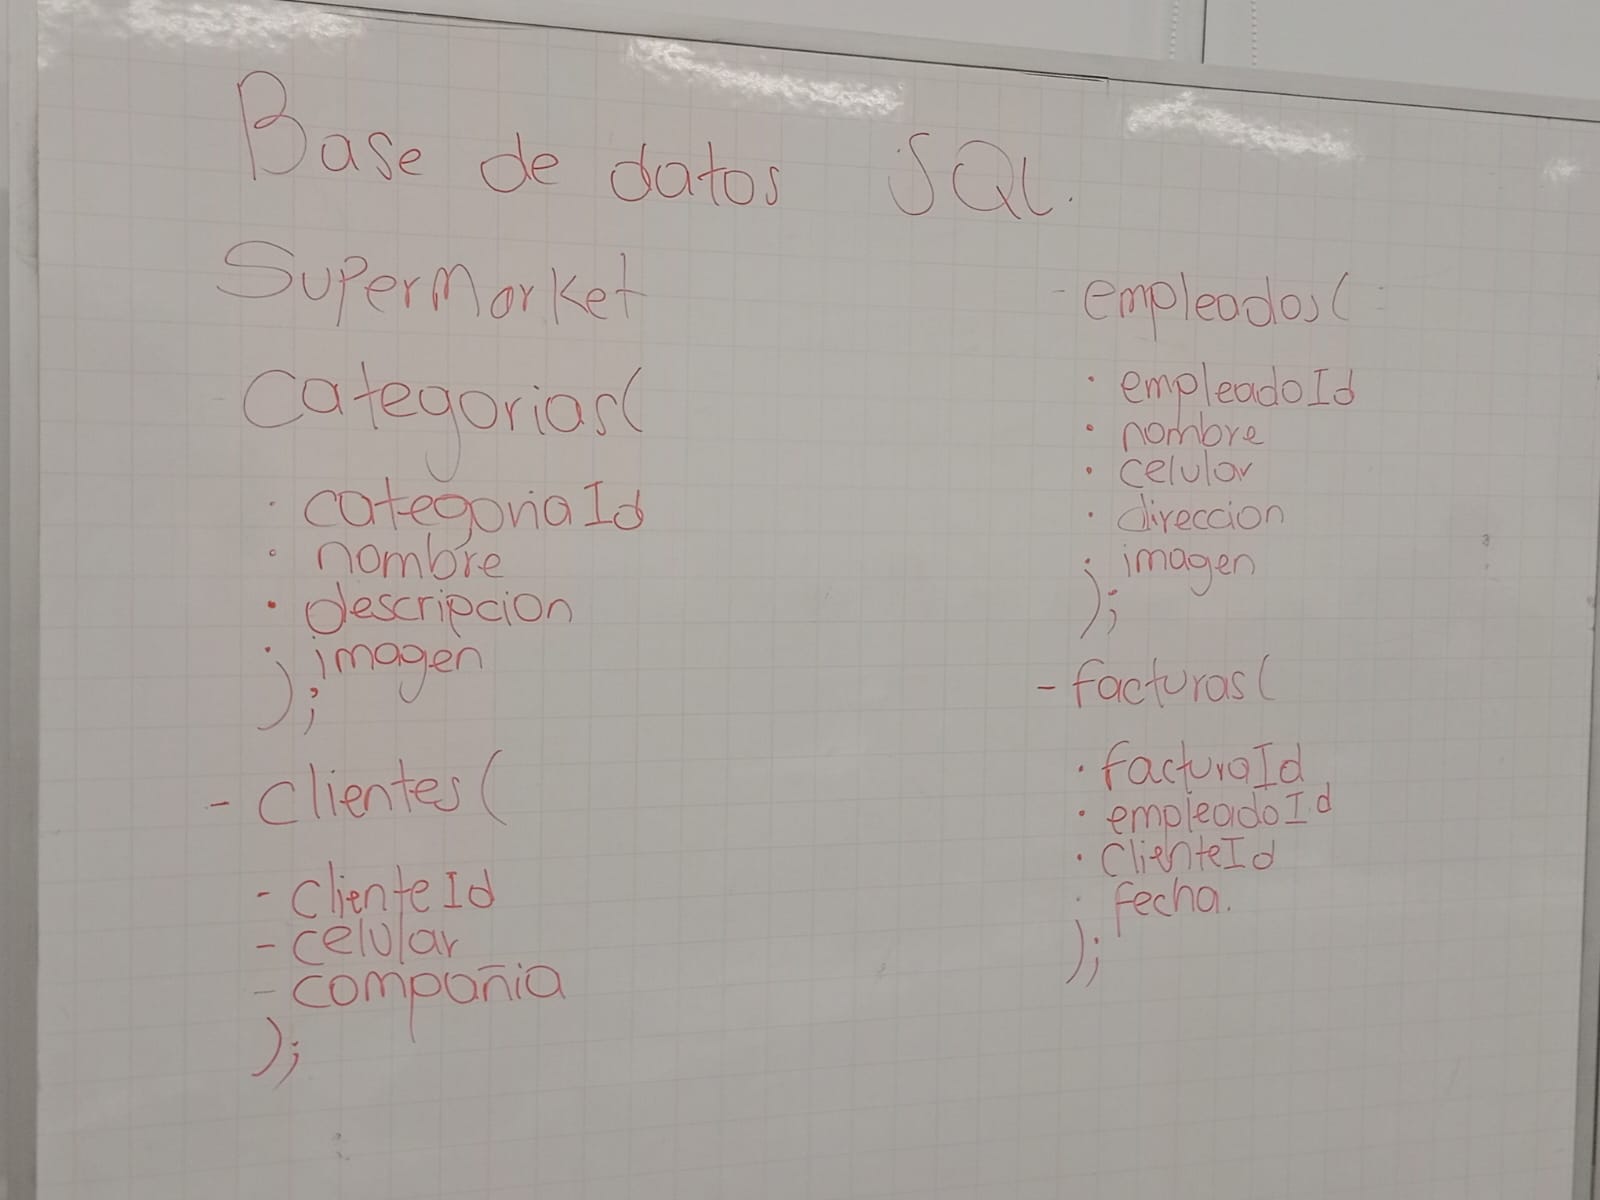 Base de datos SQL.
SuperMarket
Categorias(
· categoriaId
· nombre
· descripcion
· imagen
);
- Clientes(
- clienteId
- celular
- compañia
);
- empleados(
· empleadoId
· nombre
· celular
· direccion
· imagen
);
- facturas(
· facturaId
· empleadoId
· ClienteId
· fecha.
);